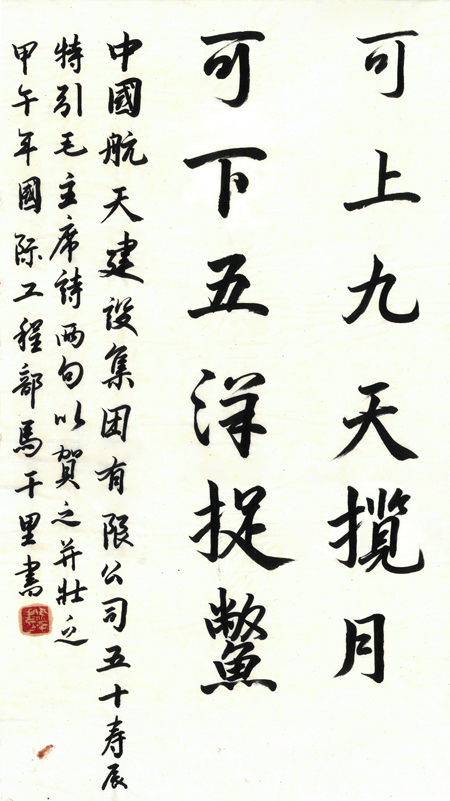 可上九天揽月
可下五洋捉鱉
中國航天建设集团有限公司五十寿辰
特引毛主席詩两句以賀之并壮之
甲午年國际工程部馬千里書